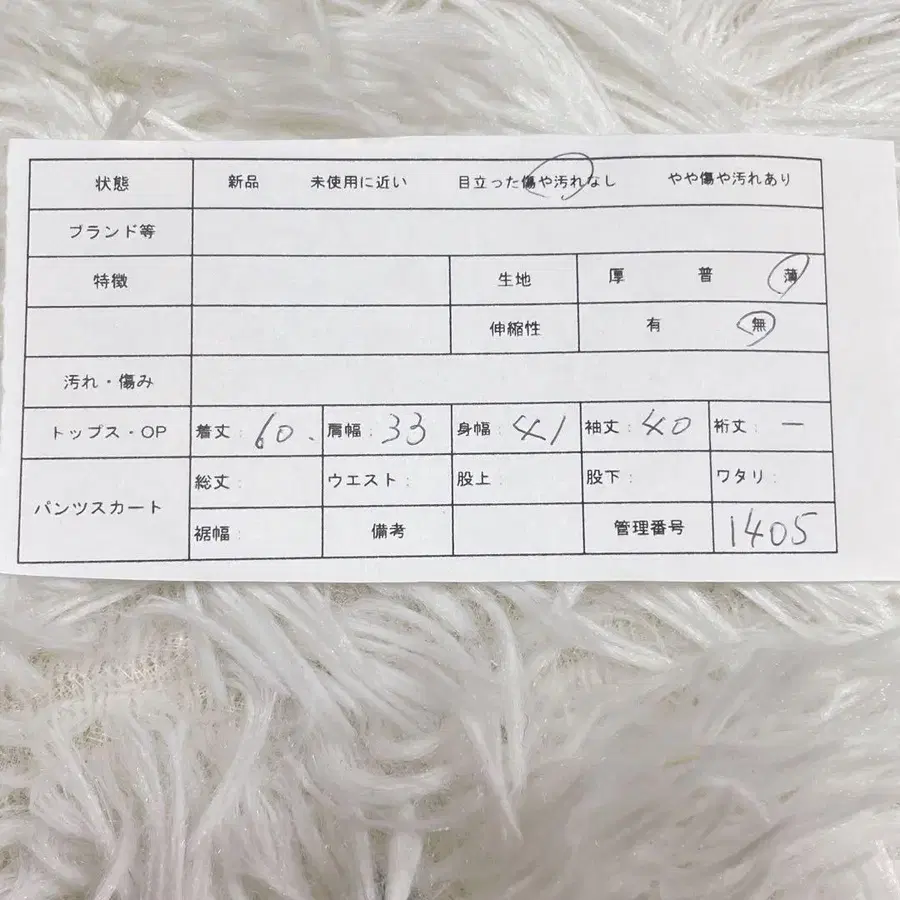 状態 新品 未使用に近い 目立った傷や汚れなし やや傷や汚れあり
ブランド等
特徴 生地 厚 普 薄
伸縮性 有 無
汚れ・傷み
トップス・OP 着丈: 60. 肩幅: 33 身幅: 41 袖丈: 40 裄丈: ー
パンツスカート 総丈: ウエスト: 股上: 股下: ワタリ:
裾幅: 備考 管理番号 1405